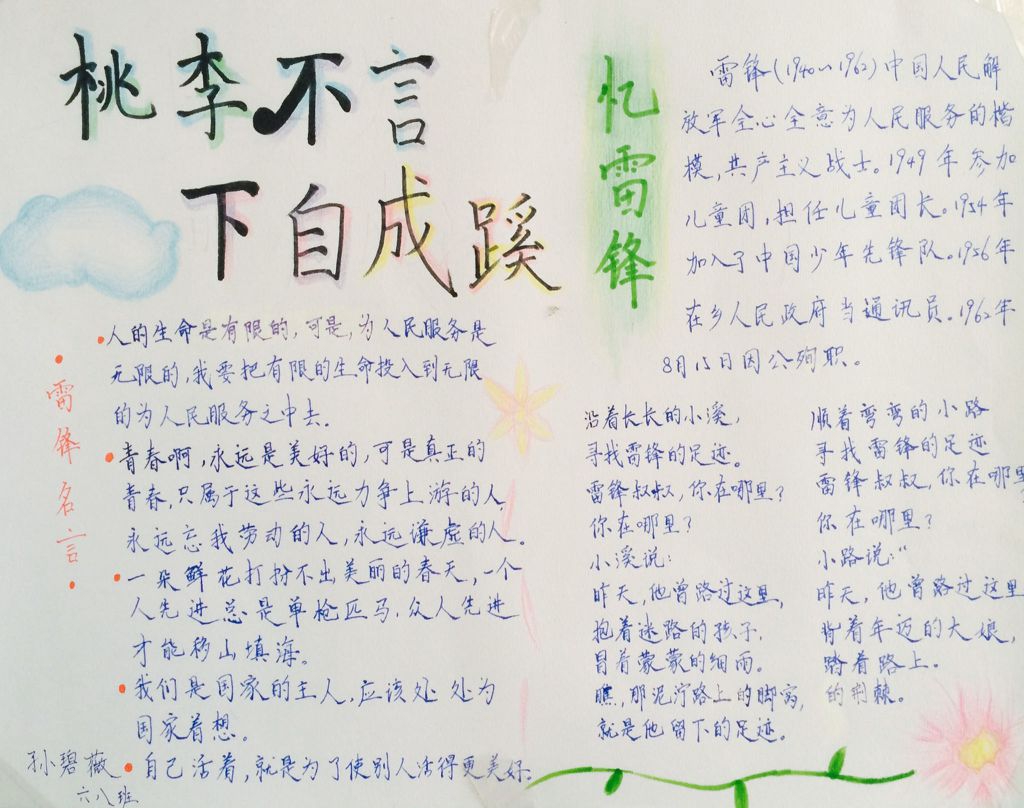 桃李不言
下自成蹊
雷锋名言
人的生命是有限的,可是,为人民服务是
无限的,我要把有限的生命投入到无限
的为人民服务之中去.
青春啊,永远是美好的,可是真正的
青春,只属于这些永远力争上游的人,
永远忘我劳动的人,永远谦虚的人。
一朵鲜花打扮不出美丽的春天,一个
人先进总是单枪匹马,众人先进
才能移山填海。
我们是国家的主人,应该处处为
国家着想。
自己活着,就是为了使别人活得更美好.
孙碧薇
六八班
忆雷锋
雷锋(1940~1962)中国人民解
放军全心全意为人民服务的楷
模,共产主义战士。1949年参加
儿童团,担任儿童团长。1954年
加入了中国少年先锋队。1956年
在乡人民政府当通讯员。1962年
8月15日因公殉职。
沿着长长的小溪,
寻找雷锋的足迹。
雷锋叔叔,你在哪里?
你在哪里?
小溪说:
昨天,他曾路过这里,
抱着迷路的孩子,
冒着蒙蒙的细雨。
瞧,那泥泞路上的脚窝,
就是他留下的足迹。
顺着弯弯的小路
寻找雷锋的足迹
雷锋叔叔,你在哪里
你在哪里?
小路说:“
昨天,他曾路过这里
背着年迈的大娘,
踏着路上.
的荆棘。